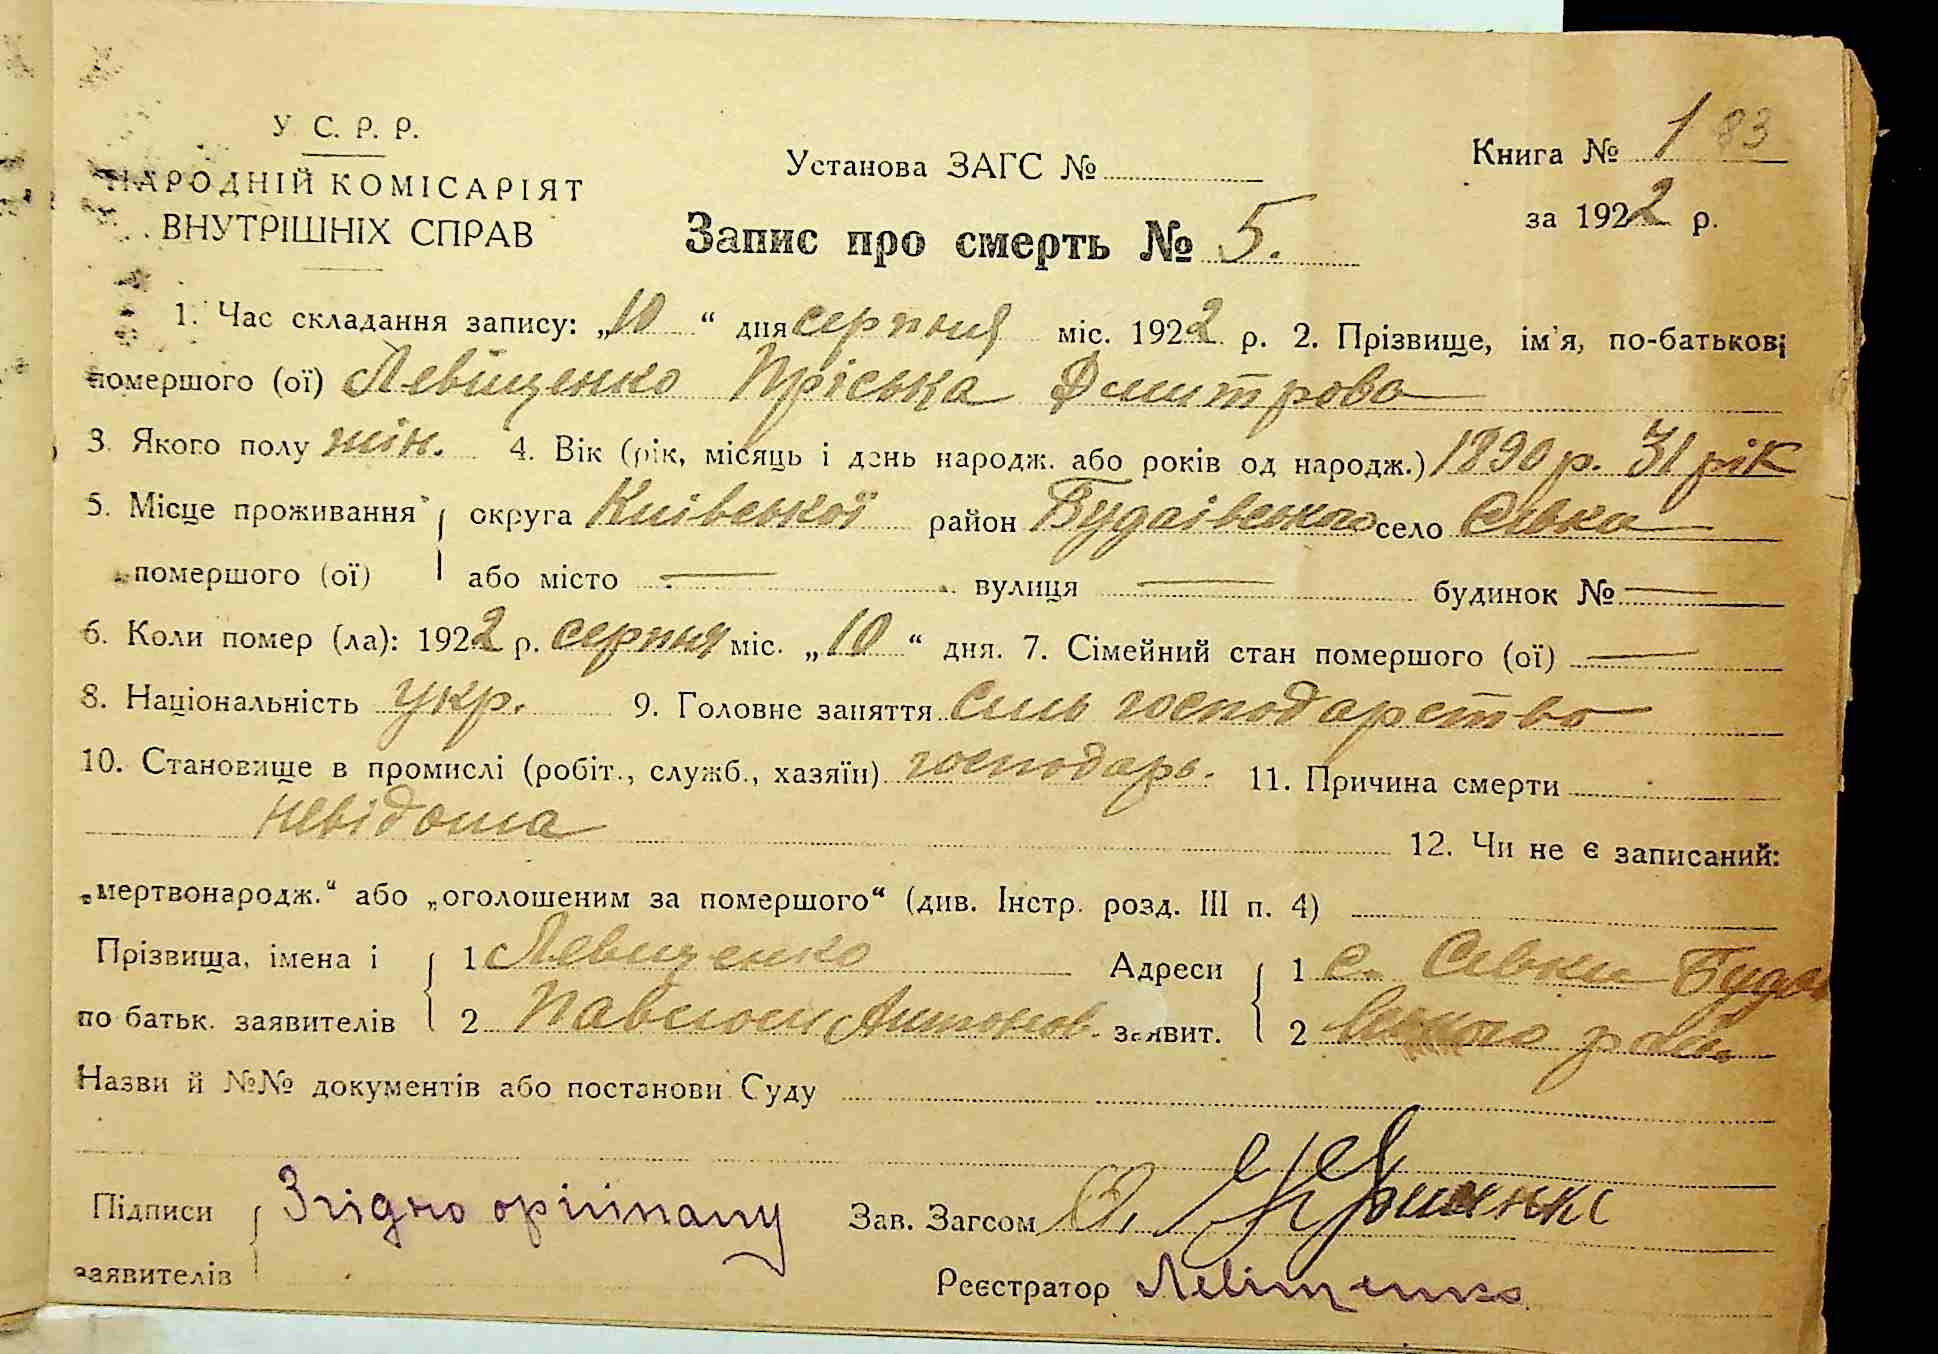 У С. Р. Р.
НАРОДНІЙ КОМІСАРІЯТ
ВНУТРІШНІХ СПРАВ
Установа ЗАГС №
Книга № 1 83
за 1922 р.
Запис про смерть № 5.
1. Час складання запису: „10“ дня серпня міс. 1922 р. 2. Прізвище, ім'я, по-батькові
помершого (ої) Левіщенко Пріська Дмитрова
3. Якого полу жін. 4. Вік (рік, місяць і день народж. або років од народж.) 1890 р. 31 рік
5. Місце проживання округа Київської район Будаівського село Сівки
помершого (ої) або місто — вулиця — будинок № —
6. Коли помер (ла): 1922 р. серпня міс. „10“ дня. 7. Сімейний стан помершого (ої) —
8. Національність укр. 9. Головне заняття силь господарство
10. Становище в промислі (робіт., служб., хазяїн) господарь. 11. Причина смерти
невідома
12. Чи не є записаний:
„мертвонародж.“ або „оголошеним за помершого“ (див. Інстр. розд. III п. 4)
Прізвища, імена і 1 Левіщенко Адреси 1 с. Сівки Будаі
по батьк. заявителів 2 Павлюси Антонов. заявит. 2 вського рай.
Назви й №№ документів або постанови Суду
Підписи Згідно оригіналу Зав. Загсом
заявителів Реєстратор Левіщенко